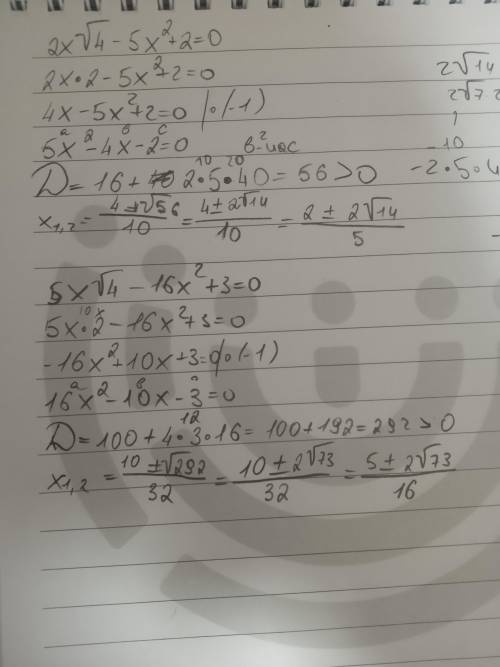 2x√4 - 5x²+2=0
2x·2 - 5x²+2=0
4x - 5x²+2=0 /·(-1)
a b c
5x² - 4x - 2=0
b²-4ac
10 20
D = 16 + 2·5·40 = 56 > 0
x₁,₂ = (4±√56)/10 = (4±2√14)/10 = (2± 2√14)/5
2√14
2√7·2
-10
-2·5·4
5x√4 - 16x²+3=0
10x
5x·2 - 16x²+3=0
-16x²+10x+3=0/·(-1)
a b c
16x²-10x-3=0
12
D = 100+4·3·16= 100+192=292 > 0
x₁,₂ = (10 ±√292)/32 = (10±2√73)/32 = (5±2√73)/16